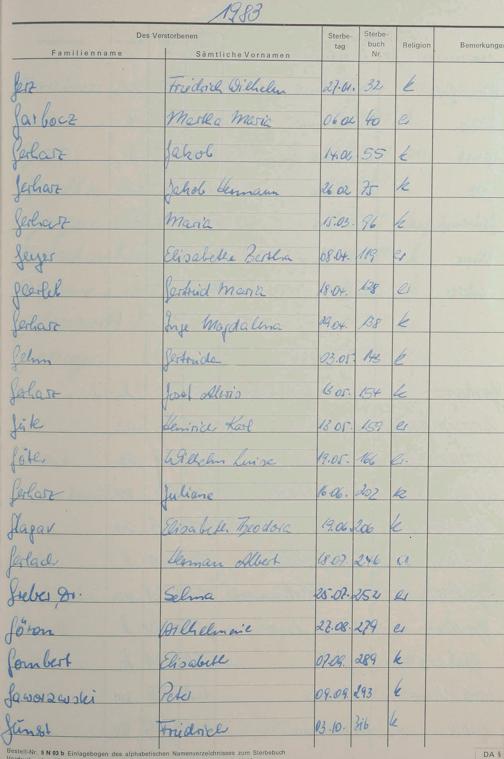 1983
Des Verstorbenen Sterbe- Sterbe- Religion Bemerkungen
Familienname Sämtliche Vornamen tag buch Nr.
Friedrich Wilhelm 27.01. 32 k
Garbocz Martha Maria 06.02 40 ev
Gerharz Jakob 14.02 55 k
Gerharz Jakob Hermann 26.02 75 k
Gerharz Maria 15.03. 96 k
Geyer Elisabetha Bertha 08.04. 119 ev
Gertrud Maria 18.04. 128 ev
Gerharz Inge Magdalena 29.04. 138 k
Gehm Gertruda 03.05. 143 k
Gerharz Josef Alois 154 k
Heinrich Karl 13.05. 159 ev
Wilhelm Luise 19.05. 166 ev.
Gerharz Juliane 16.06. 202 k
Elisabeth Theodora 19.06 206 k
Gerlach Herman Albert 18.07. 246 ev
Greber, Dr. Selma 25.07. 252 ev
Wilhelmine 27.08. 279 ev
Gombert Elisabeth 07.09. 289 k
Jaworzewski Peter 09.09. 293 k
Friedrich 03.10. 316 k
Bestell-Nr. § N 03 b Einlagebogen des alphabetischen Namenverzeichnisses zum Sterbebuch DA §